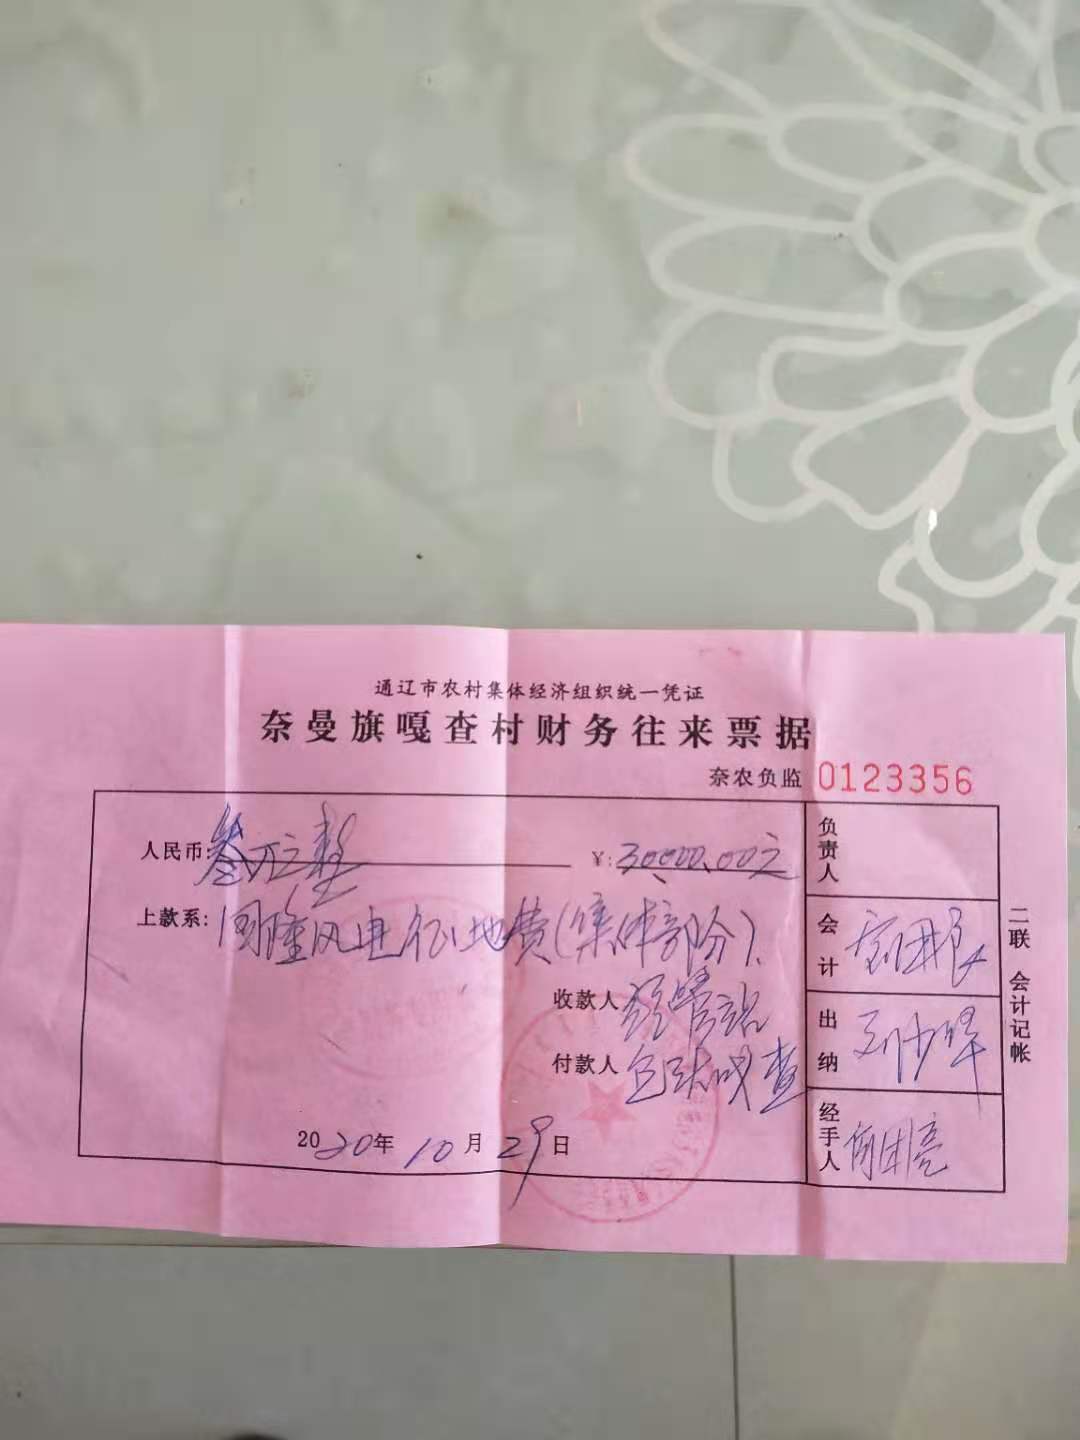 通辽市农村集体经济组织统一凭证
奈曼旗嘎查村财务往来票据
奈农负监 0123356
人民币: 叁万元整 ¥: 30000.00元
上款系: 国隆风电征地费(集体部分).
收款人 经管站
付款人 嘎查
2020年 10月 29日
负责人
会计
出纳 刘少军
经手人
二联 会计记帐